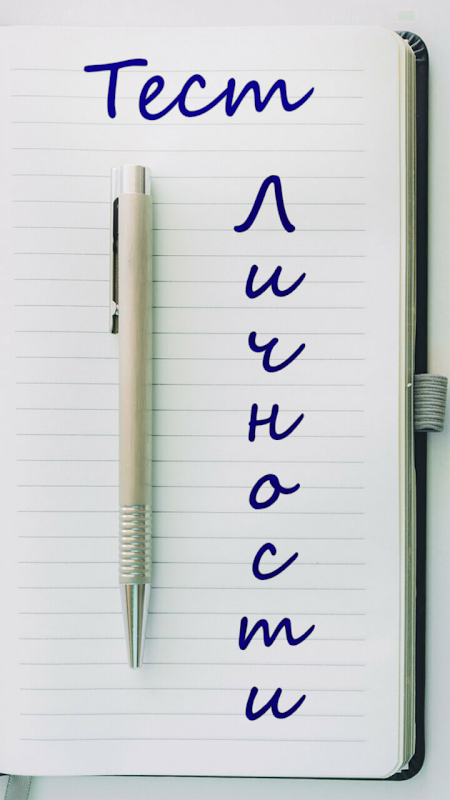 Тест
Л
и
ч
н
о
с
т
и